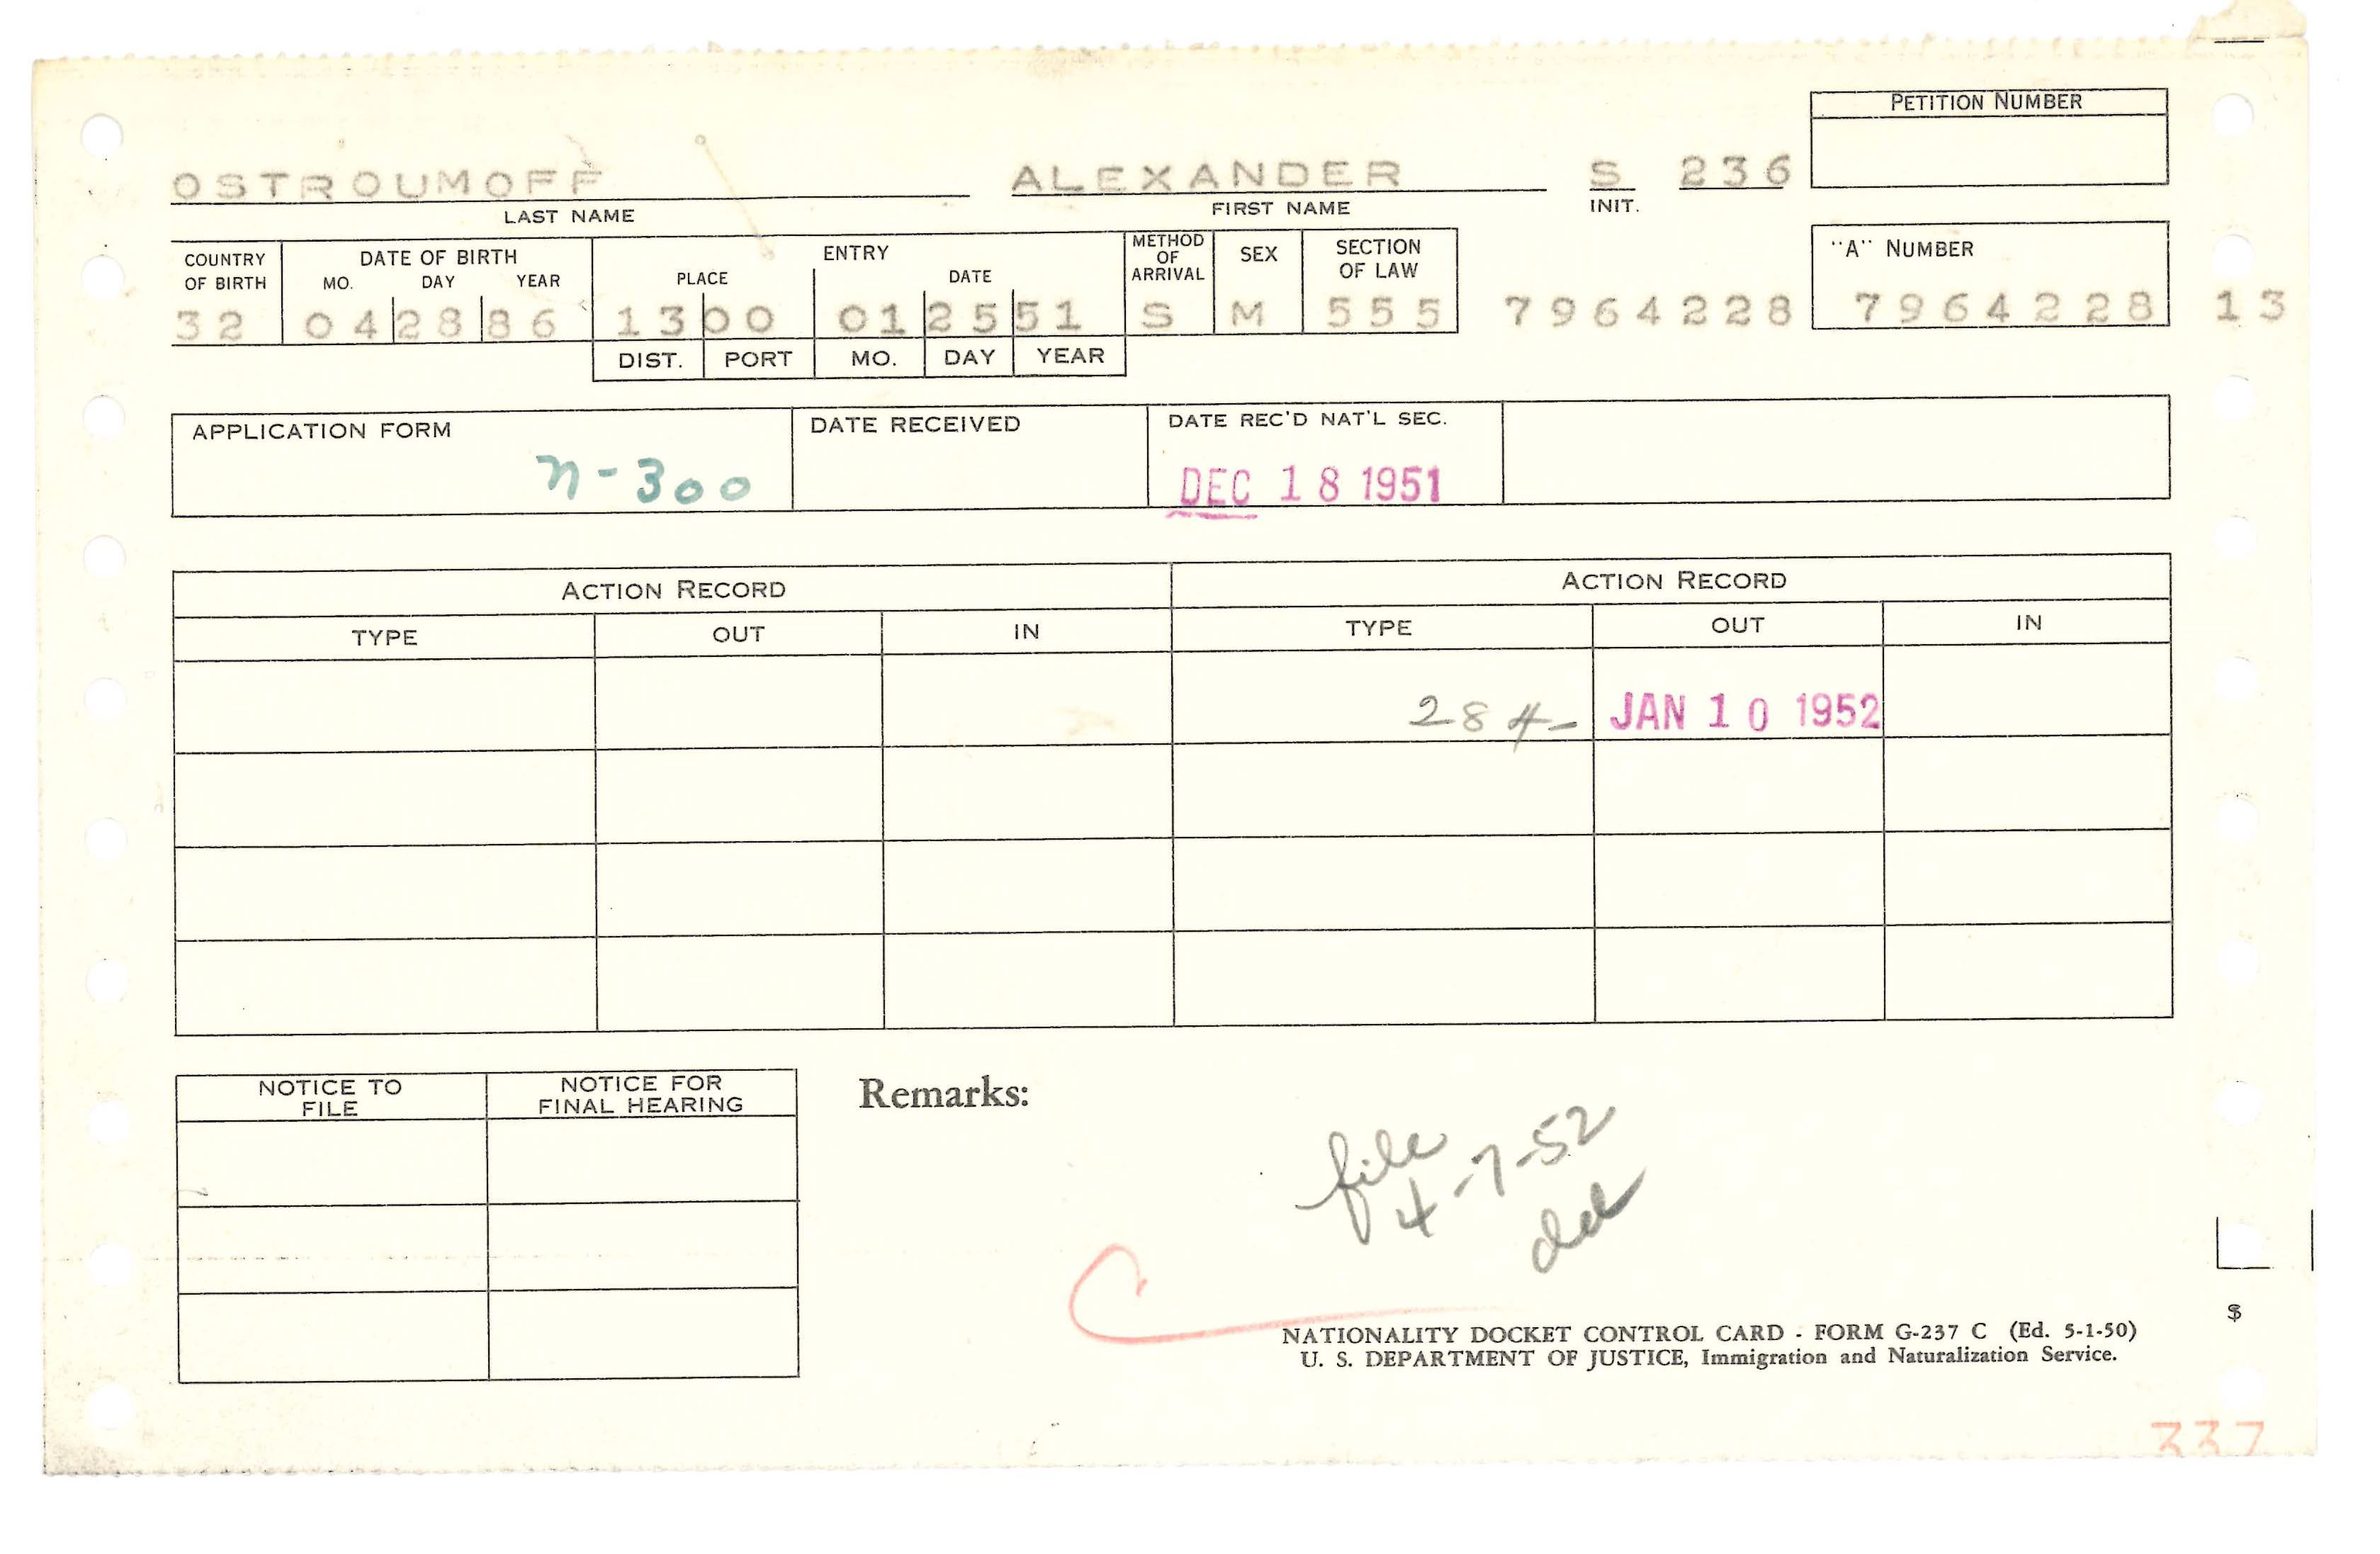 PETITION NUMBER
OSTROUMOFF ALEXANDER S 236
LAST NAME FIRST NAME INIT.
COUNTRY OF BIRTH DATE OF BIRTH ENTRY METHOD OF ARRIVAL SEX SECTION OF LAW "A" NUMBER
MO. DAY YEAR PLACE DATE
32 04 28 86 13 00 01 25 51 S M 555 7964228 7964228 13
DIST. PORT MO. DAY YEAR
APPLICATION FORM DATE RECEIVED DATE REC'D NAT'L SEC.
N-300 DEC 18 1951
ACTION RECORD ACTION RECORD
TYPE OUT IN TYPE OUT IN
284 JAN 10 1952
NOTICE TO FILE NOTICE FOR FINAL HEARING
Remarks:
file
4-7-52
NATIONALITY DOCKET CONTROL CARD - FORM G-237 C (Ed. 5-1-50)
U. S. DEPARTMENT OF JUSTICE, Immigration and Naturalization Service.
$
337